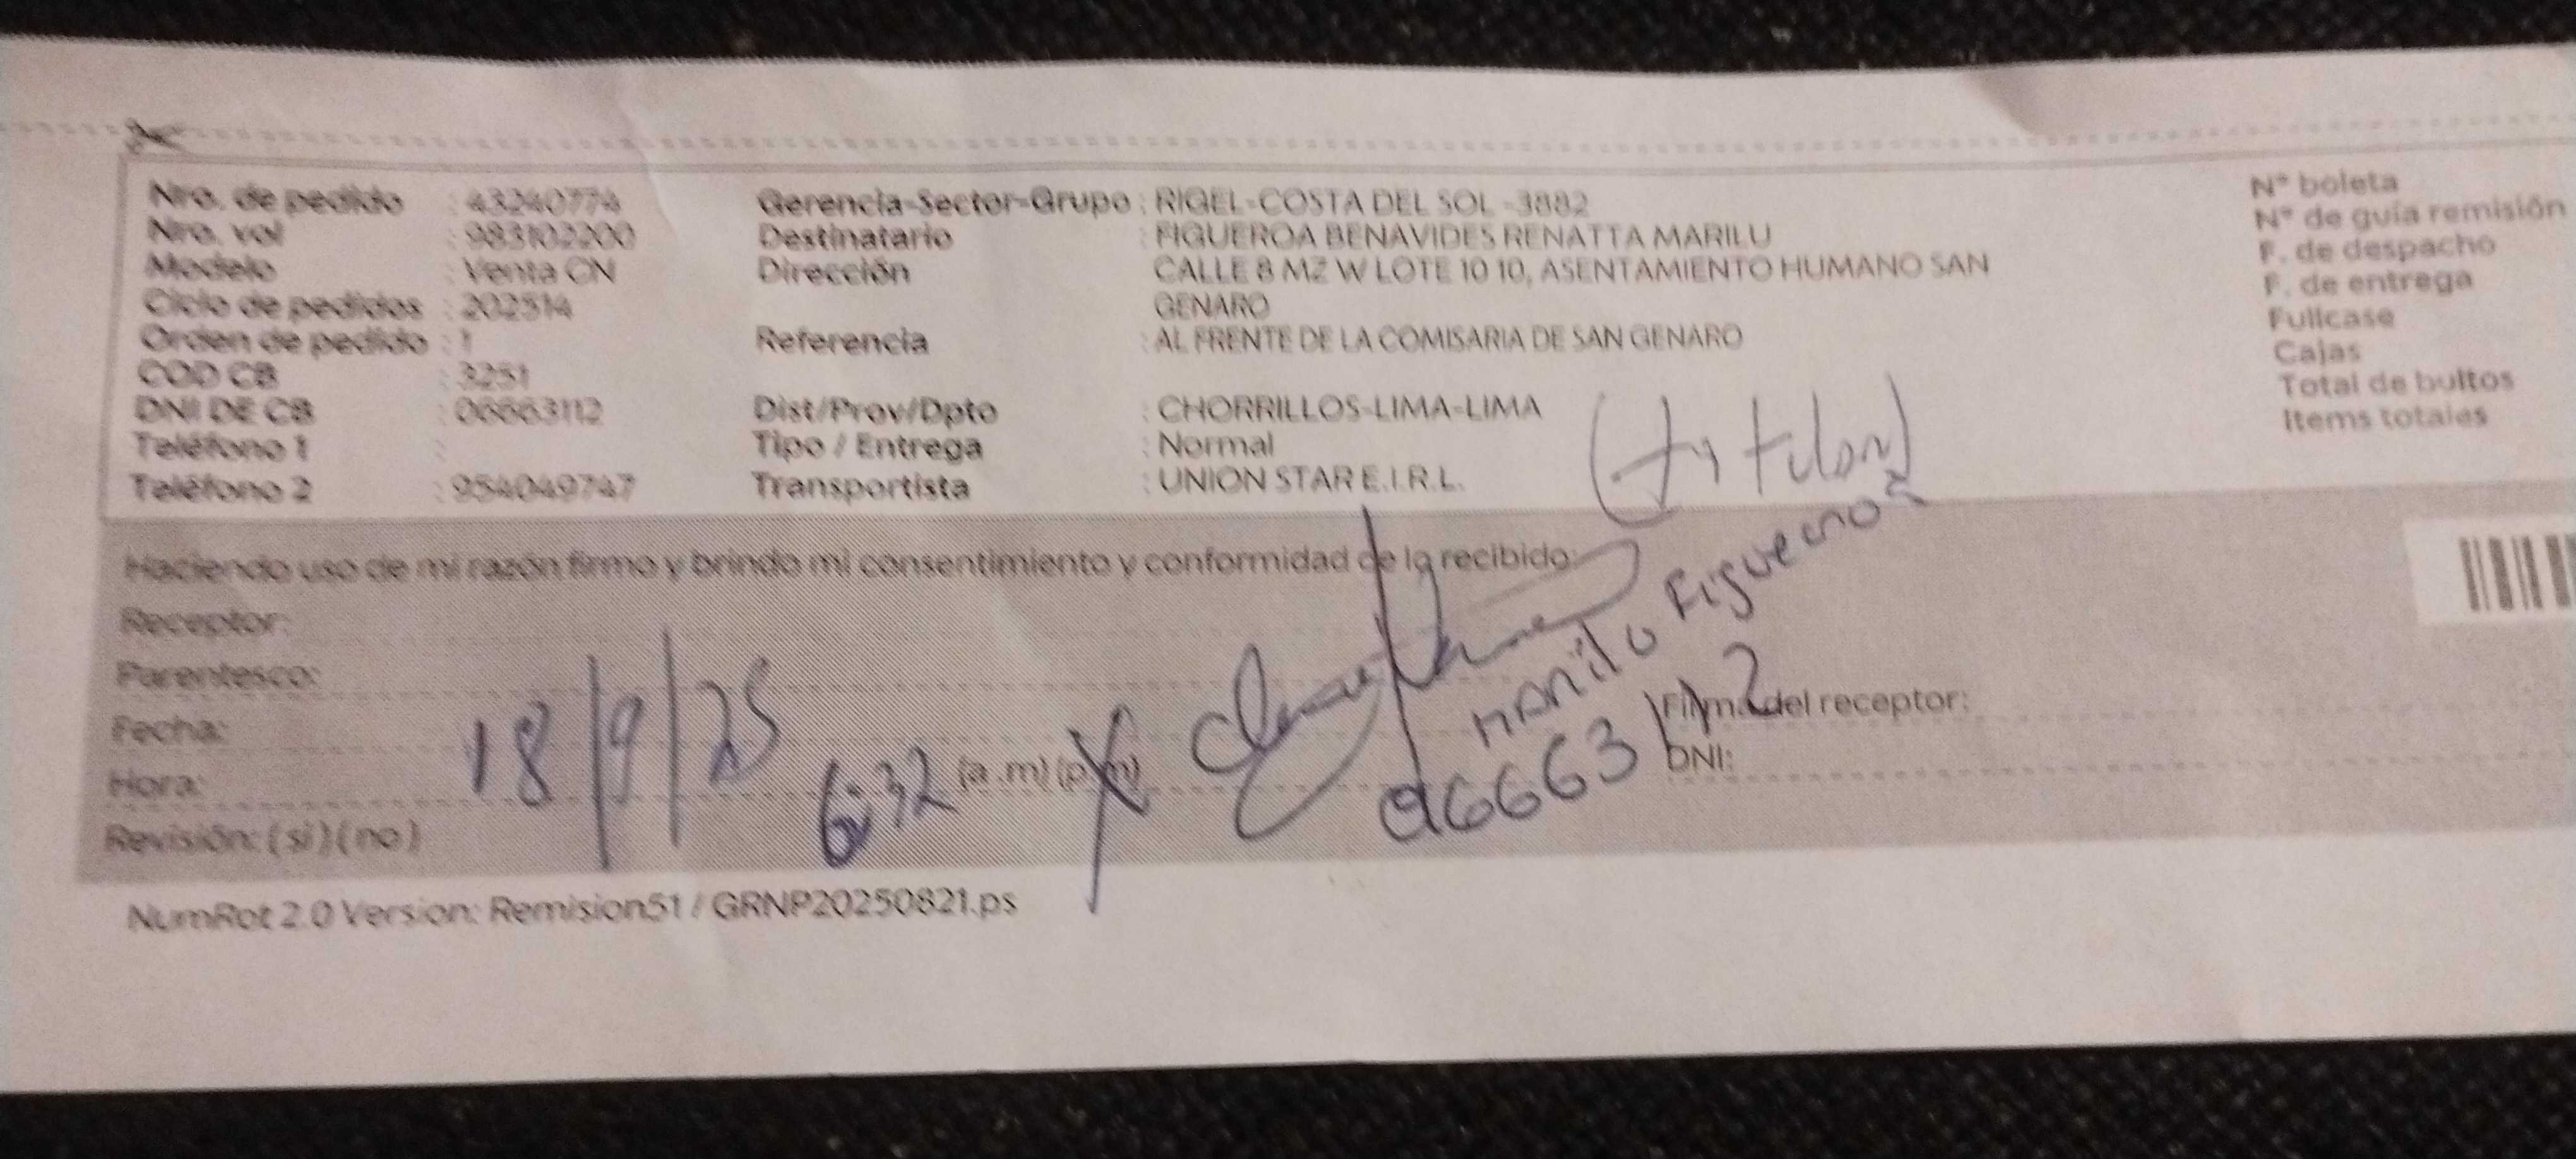 Nro. de pedido : 43240774
Nro. vol : 983102200
Modelo : Venta CN
Ciclo de pedidos : 202514
Orden de pedido : 1
COD CB : 3251
DNI DE CB : 06663112
Teléfono 1 :
Teléfono 2 : 954049747
Gerencia-Sector-Grupo : RIGEL-COSTA DEL SOL -3882
Destinatario : FIGUEROA BENAVIDES RENATTA MARILU
Dirección CALLE 8 MZ W LOTE 10 10, ASENTAMIENTO HUMANO SAN
GENARO
Referencia : AL FRENTE DE LA COMISARIA DE SAN GENARO
Dist/Prov/Dpto : CHORRILLOS-LIMA-LIMA
Tipo / Entrega : Normal
Transportista : UNION STAR E.I.R.L.
N° boleta
N° de guía remisión
F. de despacho
F. de entrega
Fullcase
Cajas
Total de bultos
Items totales
Haciendo uso de mi razón firmo y brindo mi consentimiento y conformidad de lo recibido:
Receptor:
Parentesco:
Fecha: 18/9/25
Hora: 6:32 (a.m) (p.m)
Revisión: (si) (no)
Marilu Figueroa
06663112
Firma del receptor:
DNI:
NumRot 2.0 Version: Remision51 / GRNP20250821.ps